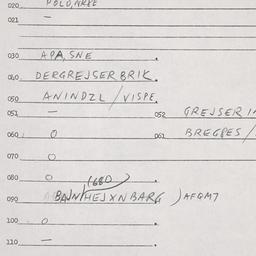 020
021 —
030 APA, SNE
040 DERGREJSERBRIK.
050 ANINDZL / VISPE.
051 — 052 GREJSER I
060 O 061 BREGPES /
070 O
080 O (680)
090 BAJN/HEJXNBARG ) AFGM7
100 O
110 —